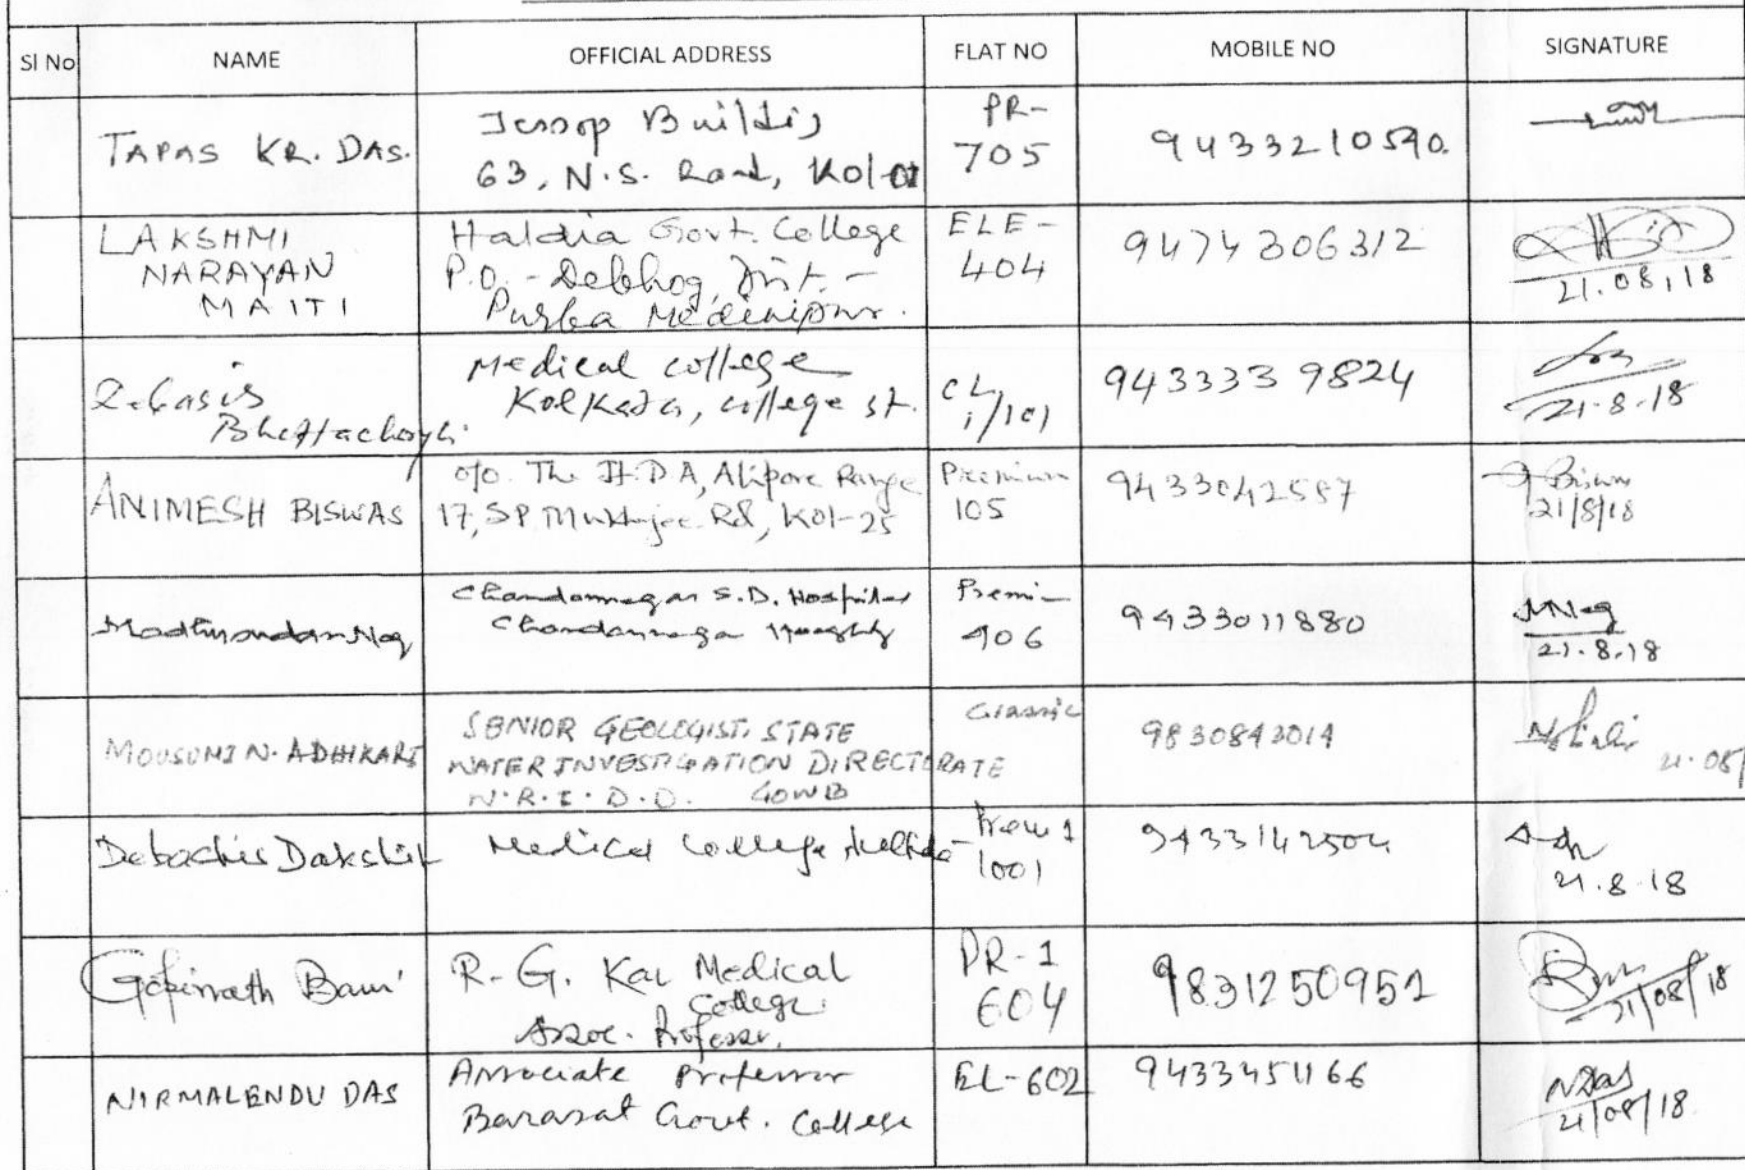 SI No NAME OFFICIAL ADDRESS FLAT NO MOBILE NO SIGNATURE
TAPAS KR. DAS.
Jessop Building
63, N.S. Road, Kol-01
PR-
705
9433210590.
LAKSHMI
NARAYAN
MAITI
Haldia Govt. College
P.O. - Debhog, Dist. -
Purba Medinipur.
ELE-
404
9474306312
21.08.18
Debasis
Bhattacharya
Medical college
Kolkata, college st.
CL
1/101
943333 9824
21.8.18
ANIMESH BISWAS
o/o. The J.D.A, Alipore Range
17, SP Mukherjee Rd, Kol-25
Premium
105
9433042587
Biswas
21/8/18
Madhusudan Nag
Chandannagar S.D. Hospital
Chandannagar Hooghly
Premi-
406
9433011880
MNag
21.8.18
MOUSUMI N. ADHIKARI
SENIOR GEOLOGIST, STATE
WATER INVESTIGATION DIRECTORATE
GOWB
Classic
9830843014
21.08
Debashis Dakshit
Medical College Kolkata
Prem 1
1001
9433142504
21.8.18
Gopinath Barui
R. G. Kar Medical
College
Assoc. Professor.
PR-1
604
9831250951
21/08/18
NIRMALENDU DAS
Associate Professor
Barasat Govt. College
EL-602
9433451166
NDas
21/08/18